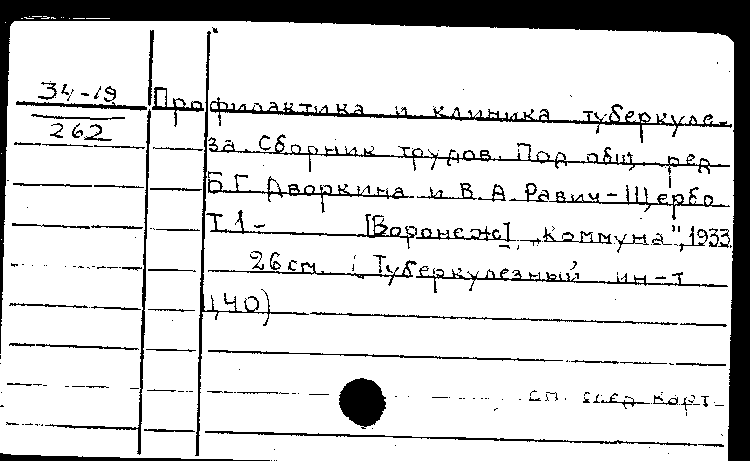 34-19
262
Профилактика и клиника туберкуле-
за. Сборник трудов. Под общ. ред.
Б.Г. Дворкина и В.А. Равич-Щербо
Т 1- [Воронеж], „Коммуна", 1933
26 см. (Туберкулезный ин-т
1,40)
см. след. карт.